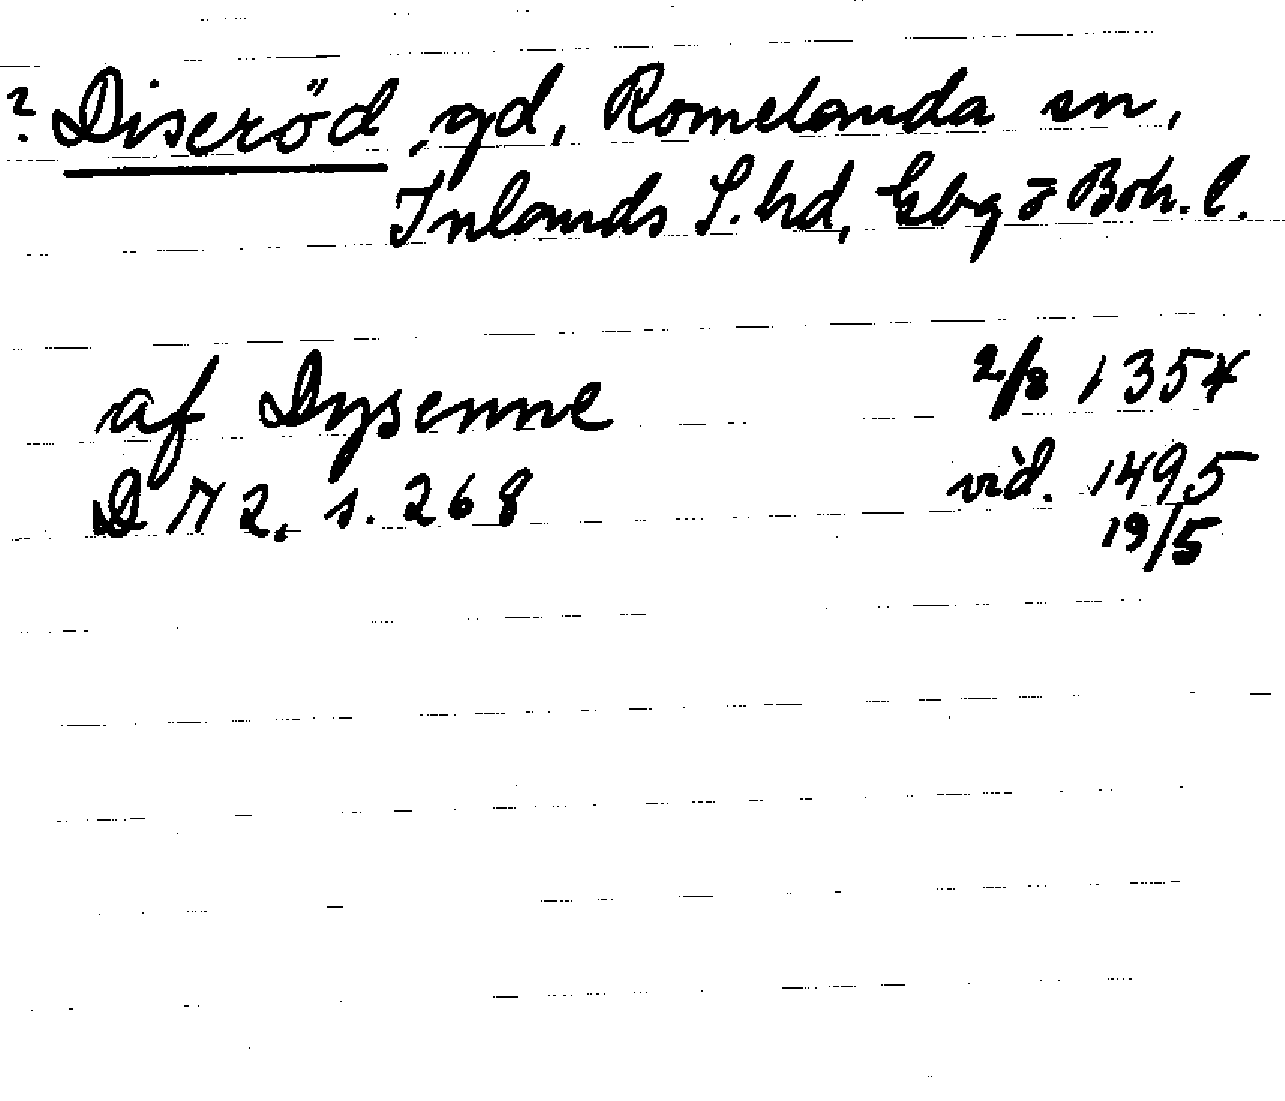 ? Diseröd, gd, Romelanda sn,
Inlands S. hd, Gbg o Boh. l.
af Dysenne 2/8 1354
D N 2, s. 268 vid. 1495
19/5